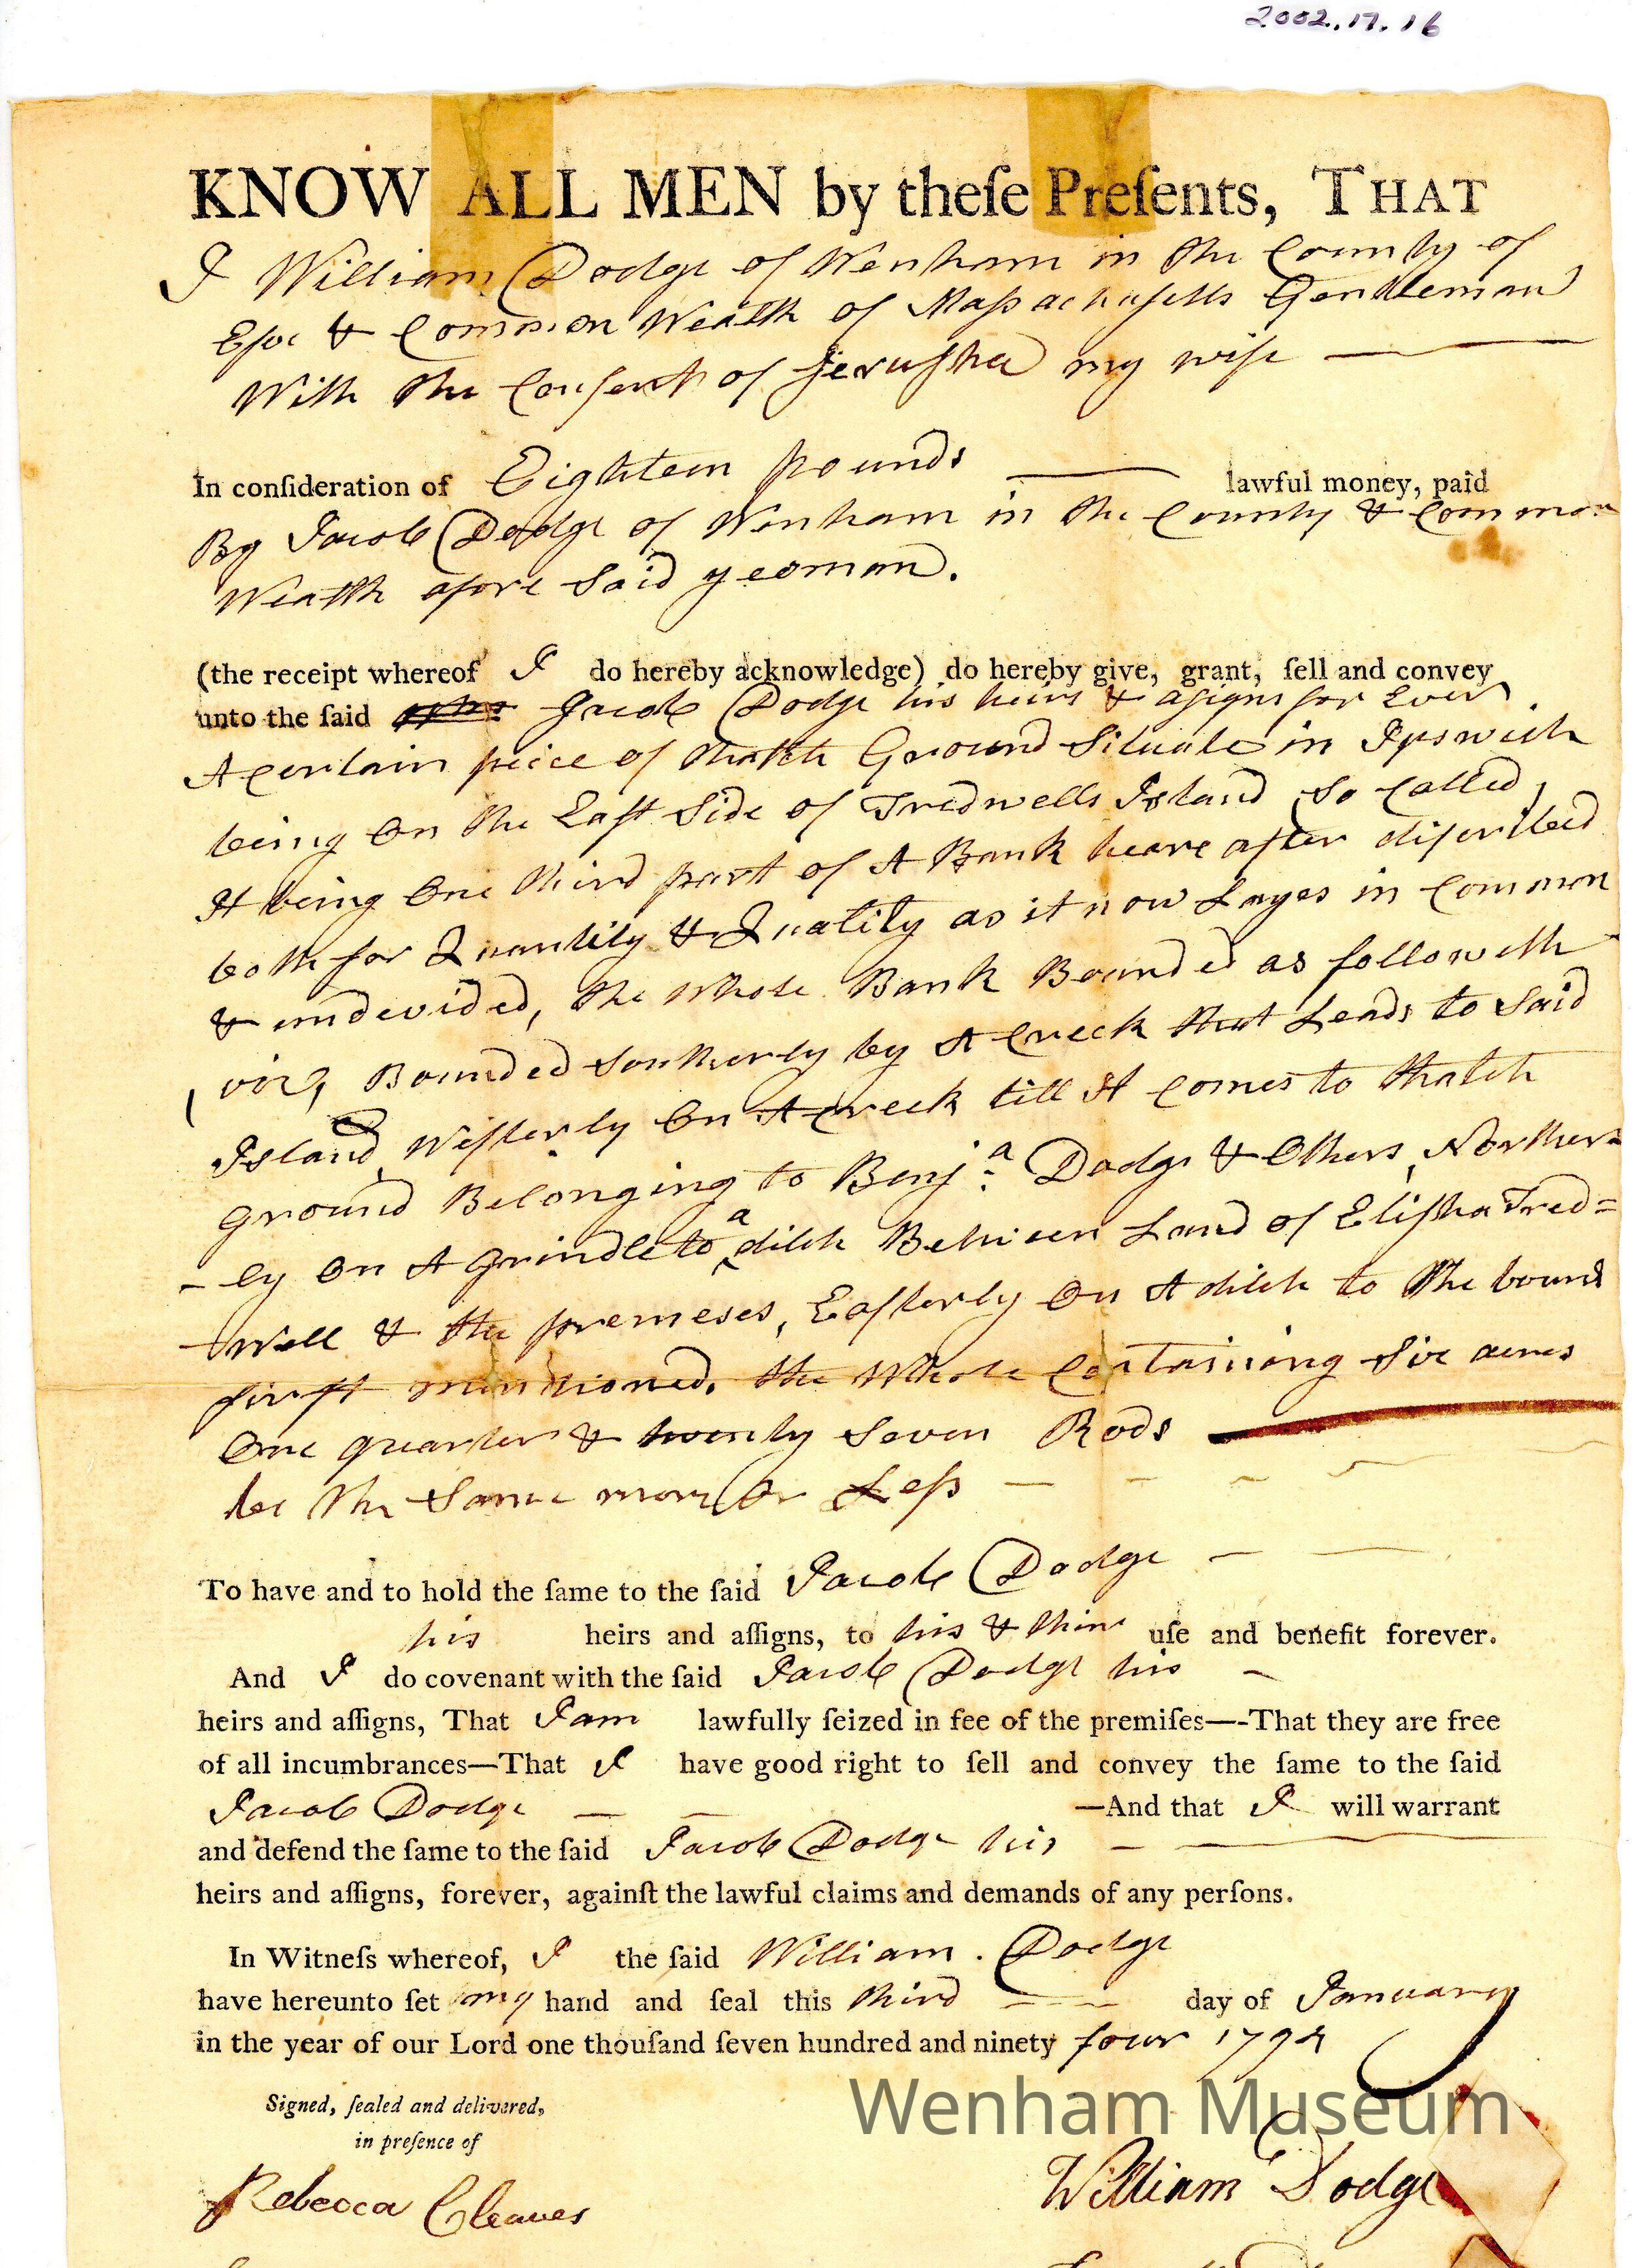 2002.17.16
KNOW ALL MEN by theſe Preſents, THAT
I William Dodge of Wenham in the County of
Eſex & Common Wealth of Maſsachuſetts Gentleman
With the Conſent of Jeruſha my wife
In conſideration of Eighteen pounds lawful money, paid
By Jacob Dodge of Wenham in the County & Common
Wealth afore Said yeoman.
(the receipt whereof I do hereby acknowledge) do hereby give, grant, ſell and convey
unto the ſaid Jacob Dodge his heirs & aſigns for Ever
A Certain peice of thatch Ground Situate in Ipswich
being On the Eaſt Side of Tredwells Island So Called,
It being One third part of A Bank heare after diſcribed
both for Quantity & Quality as it now Layes in Common
& undevided, the Whole Bank Bounded as followeth
viz, Bounded Southerly by A Creek that Leads to Said
Island, Weſterly On A Creek till It Comes to thatch
Ground Belonging to Benja. Dodge & Others, Norther
-ly On A Grindle to a ditch Between Land of Eliſha Tred=
-Well & the premeses, Eaſterly On A ditch to the bound
firſt mentioned. the Whole Containing Six acres
One quarter & twenty Seven Rods
be the Same more Or Leſs
To have and to hold the ſame to the ſaid Jacob Dodge
his heirs and aſſigns, to his & thier uſe and benefit forever.
And I do covenant with the ſaid Jacob Dodge his
heirs and aſſigns, That I am lawfully ſeized in fee of the premiſes—-That they are free
of all incumbrances—That I have good right to ſell and convey the ſame to the ſaid
Jacob Dodge —And that I will warrant
and defend the ſame to the ſaid Jacob Dodge his
heirs and aſſigns, forever, againſt the lawful claims and demands of any perſons.
In Witneſs whereof, I the ſaid William. Dodge
have hereunto ſet my hand and ſeal this third day of January
in the year of our Lord one thouſand ſeven hundred and ninety four 1794
Signed, ſealed and delivered,
in preſence of
Wenham Museum
Rebecca Cleaves William Dodge